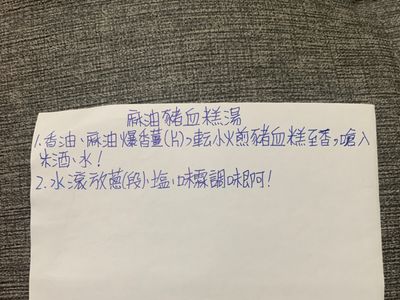 麻油豬血糕湯
1.香油、麻油爆香薑(片),轉小火煎豬血糕至香,嗆入
米酒、水!
2.水滾放蔥(段)、鹽、味霖調味即可!